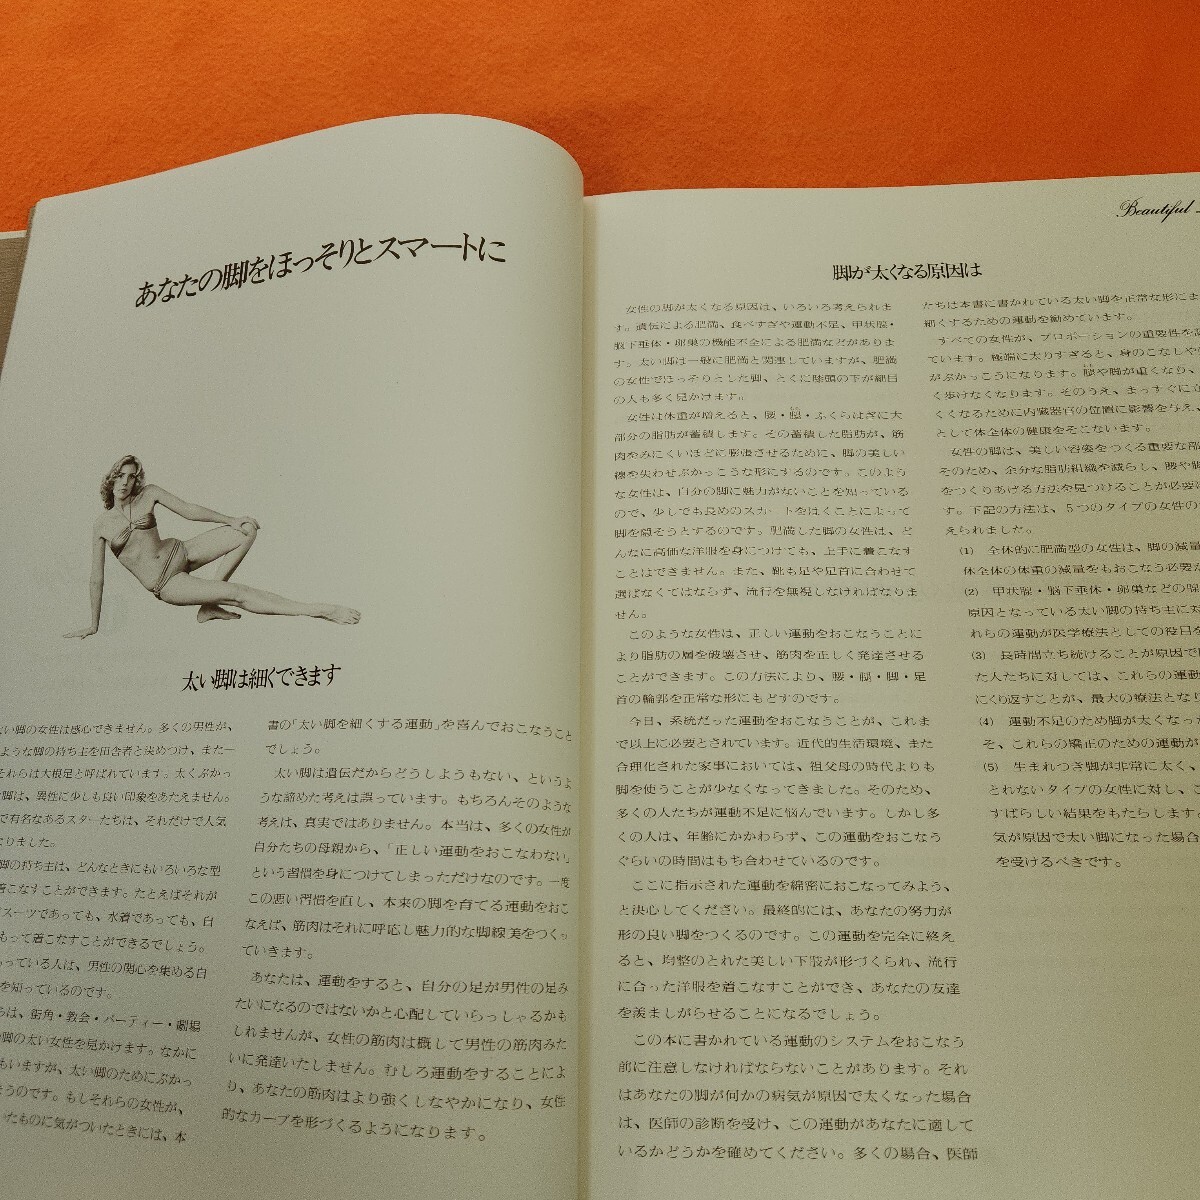 あなたの脚をほっそりとスマートに
太い脚は細くできます
い脚の女性は感心できません。多くの男性が、
ような脚の持ち主を田舎者と決めつけ、また一
それらは大根足と呼ばれています。太くぶかっ
脚は、異性に少しも良い印象をあたえません。
で有名なあるスターたちは、それだけで人気
りました。
脚の持ち主は、どんなときにもいろいろな型
着こなすことができます。たとえばそれが
スーツであっても、水着であっても、自
もって着こなすことができるでしょう。
っている人は、男性の関心を集める自
を知っているのです。
らは、街角・教会・パーティー・劇場
脚の太い女性を見かけます。なかに
もいますが、太い脚のためにぶかっ
うのです。もしそれらの女性が、
いたものに気がついたときには、本
書の「太い脚を細くする運動」を喜んでおこなうこと
でしょう。
太い脚は遺伝だからどうしようもない、というよ
うな諦めた考えは誤っています。もちろんそのような
考えは、真実ではありません。本当は、多くの女性が
自分たちの母親から、「正しい運動をおこなわない」
という習慣を身につけてしまっただけなのです。一度
この悪い習慣を直し、本来の脚を育てる運動をおこ
なえば、筋肉はそれに呼応し魅力的な脚線美をつくっ
ていきます。
あなたは、運動をすると、自分の足が男性の足み
たいになるのではないかと心配していらっしゃるかも
しれませんが、女性の筋肉は概して男性の筋肉みた
いに発達いたしません。むしろ運動をすることによ
り、あなたの筋肉はより強くしなやかになり、女性
的なカーブを形づくるようになります。
Beautiful
脚が太くなる原因は
女性の脚が太くなる原因は、いろいろ考えられま
す。遺伝による肥満、食べすぎや運動不足、甲状腺・
脳下垂体・卵巣の機能不全による肥満などがありま
す。太い脚は一般に肥満と関連していますが、肥満
の女性でほっそりとした脚、とくに膝頭の下が細目
の人も多く見かけます。
女性は体重が増えると、腰・腿・ふくらはぎに大
部分の脂肪が蓄積します。その蓄積した脂肪が、筋
肉をみにくいほどに膨張させるために、脚の美しい
線を失わせぶかっこうな形にするのです。このよう
な女性は、自分の脚に魅力がないことを知っている
ので、少しでも長めのスカートをはくことによって
脚を隠そうとするのです。肥満した脚の女性は、ど
んなに高価な洋服を身につけても、上手に着こなす
ことはできません。また、靴も足や足首に合わせて
選ばなくてはならず、流行を無視しなければなりま
せん。
このような女性は、正しい運動をおこなうことに
より脂肪の層を破壊させ、筋肉を正しく発達させる
ことができます。この方法により、腰・腿・脚・足
首の輪郭を正常な形にもどすのです。
今日、系統だった運動をおこなうことが、これま
で以上に必要とされています。近代的生活環境、また
合理化された家事においては、祖父母の時代よりも
脚を使うことが少なくなってきました。そのため、
多くの人たちが運動不足に悩んでいます。しかし多
くの人は、年齢にかかわらず、この運動をおこなう
ぐらいの時間はもち合わせているのです。
ここに指示された運動を綿密におこなってみよう、
と決心してください。最終的には、あなたの努力が
形の良い脚をつくるのです。この運動を完全に終え
ると、均整のとれた美しい下肢が形づくられ、流行
に合った洋服を着こなすことができ、あなたの友達
を羨ましがらせることになるでしょう。
この本に書かれている運動のシステムをおこなう
前に注意しなければならないことがあります。それ
はあなたの脚が何かの病気が原因で太くなった場合
は、医師の診断を受け、この運動があなたに適して
いるかどうかを確めてください。多くの場合、医師
たちは本書に書かれている太い脚を正常な形にま
細くするための運動を勧めています。
すべての女性が、プロポーションの重要性を
ています。極端に太りすぎると、身のこなしや
がぶかっこうになります。腿や脚が重くなり、
く歩けなくなります。そのうえ、まっすぐに立
くくなるために内臓器官の位置に影響を与え、
として体全体の健康をそこないます。
女性の脚は、美しい容姿をつくる重要な部
そのため、余分な脂肪組織を減らし、腰や脚
をつくりあげる方法を見つけることが必要
す。下記の方法は、5つのタイプの女性の
えられました。
(1) 全体的に肥満型の女性は、脚の減量
体全体の体重の減量をもおこなう必要が
(2) 甲状腺・脳下垂体・卵巣などの
原因となっている太い脚の持ち主に対
れらの運動が医学療法としての役目を
(3) 長時間立ち続けることが原因で
た人たちに対しては、これらの運動
にくり返すことが、最大の療法となり
(4) 運動不足のため脚が太くなった
そ、これらの矯正のための運動が
(5) 生まれつき脚が非常に太く、
とれないタイプの女性に対し、こ
すばらしい結果をもたらします。
気が原因で太い脚になった場合
を受けるべきです。